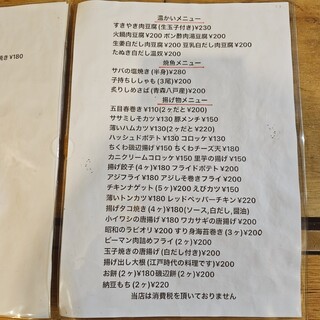 焼き ¥180
温かいメニュー
すきやき肉豆腐(生玉子付き)¥230
火鍋肉豆腐¥200 ポン酢肉湯豆腐¥200
生姜白だし肉豆腐¥200 豆乳白だし肉豆腐¥200
たぬき白だし温奴¥200
焼魚メニュー
サバの塩焼き(半身)¥280
子持ちししゃも(3尾)¥200
炙りしめさば(青森八戸産)¥200
揚げ物メニュー
五目春巻き¥110(2ヶだと¥200)
ササミしそカツ¥130 豚メンチ¥150
薄いハムカツ¥130(2ヶだと¥220)
ハッシュドポテト¥130 コロッケ¥130
ちくわ磯辺揚げ¥150 ちくわチーズ天¥180
カニクリームコロッケ¥150 里芋の揚げ¥150
揚げ餃子(4ヶ)¥180 フライドポテト¥200
アジフライ¥180 アジしそ巻きフライ¥200
チキンナゲット(5ヶ)¥200 えびカツ¥150
薄いトンカツ¥180 レッドペッパーチキン¥220
揚げタコ焼き(4ヶ)¥180(ソース,白だし,醤油)
小イワシの唐揚げ¥180 ワカサギの唐揚げ¥200
昭和のラビオリ¥200 すり身海苔巻き(3ヶ)¥200
ピーマン肉詰めフライ(2ヶ)¥200
玉子焼きの唐揚げ(白だし付き)¥200
揚げ出し大根(江戸時代の料理です)¥200
お餅(2ヶ)¥180 磯辺餅(2ヶ)¥200
納豆もち(2ヶ)¥220
当店は消費税を頂いておりません